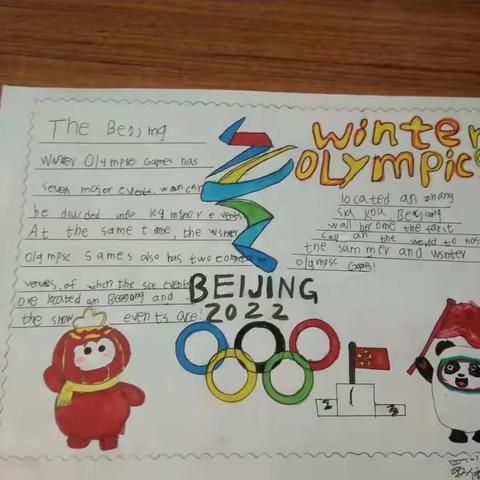 The Beijing
winter Olympse Games has
seven major events. wan can
be divided into 109 minor events
At the same tame, the wsnter
Olympsc Sames also has two
venues, of which the sce events
are located an Beijong and
the snow events are!
winter
OLYMPIC
located an zhang
sia kou, Beijong
wall become the farst
an the world to host
the summer and wsnter
olympsc Games!
BEIJING
2022
2 1 3